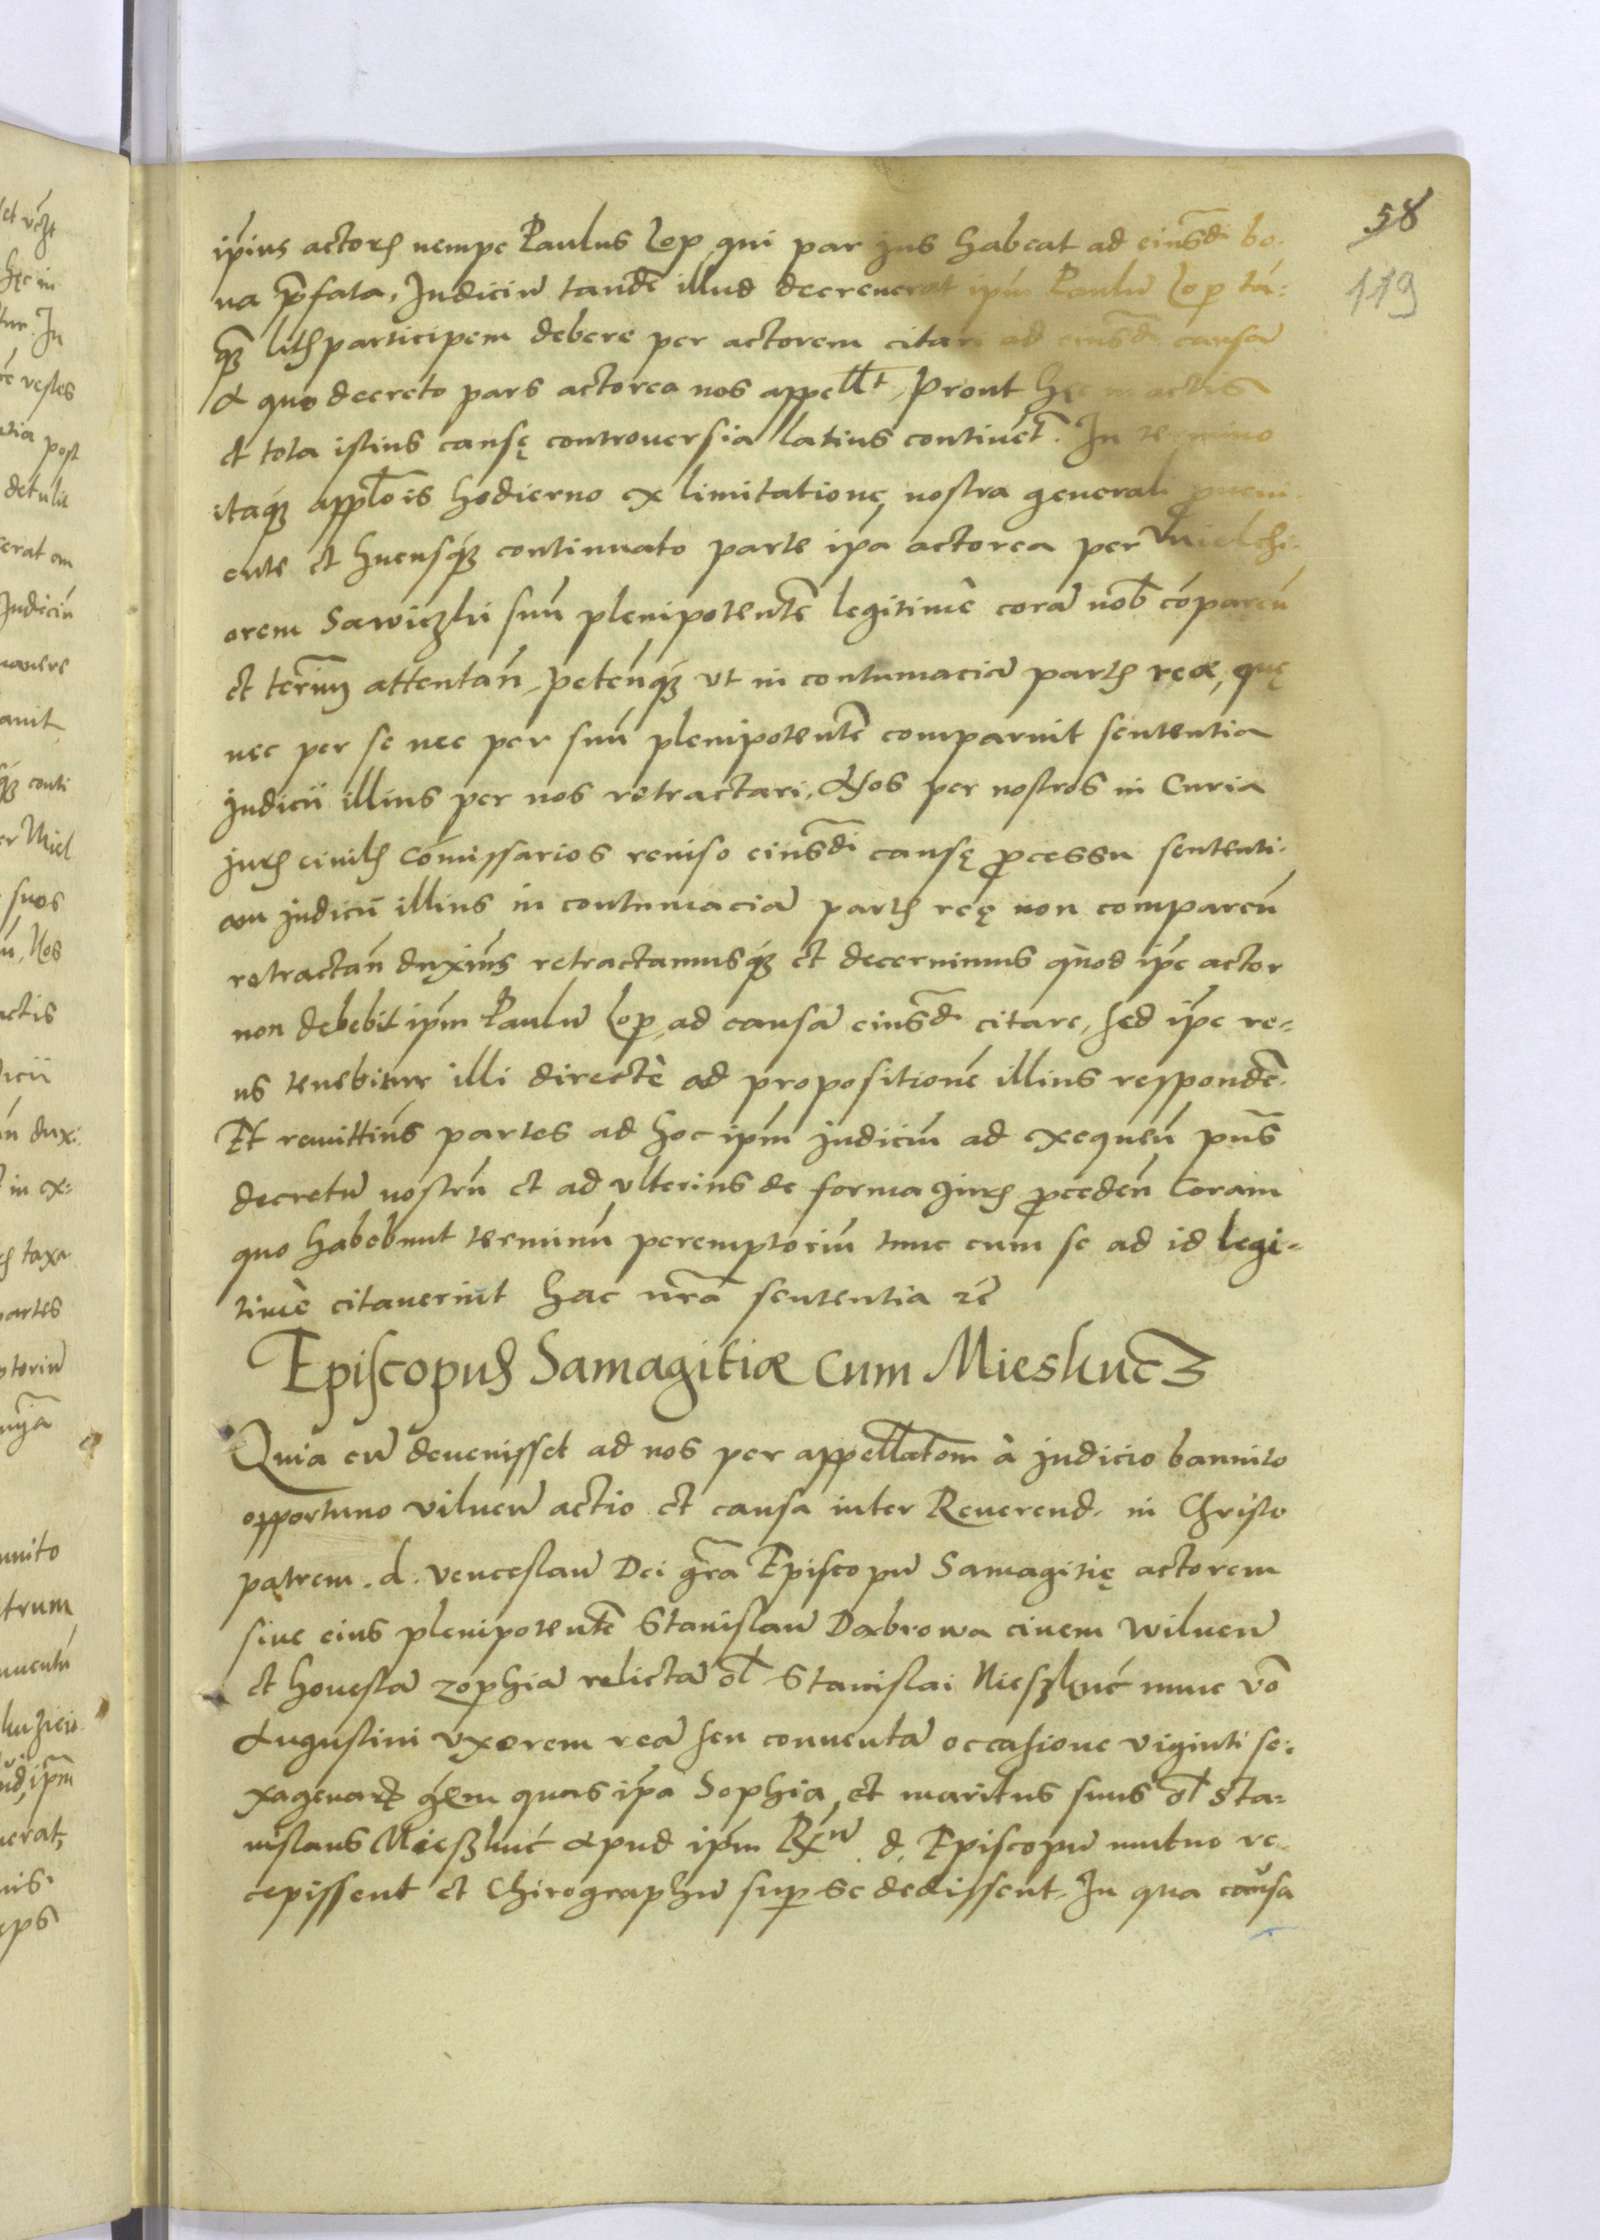 58
119
ip̃ius actoris nempe Paulus Lop qui par jus habeat ad eiusdẽ bo-
na p̃fata, Judiciũ tandẽ illud decreuerat ip̃m Paulũ Lop tã-
q̃ litisparticipem debere per actorem citari ad eiusdẽ causã
A quo decreto pars actorea nos appell̃t, Prout hęc in actis
et tota istius causę controuersia latius continet̃. In termino
itaq̃ appl̃ois hodierno ex limitatione nostra generali proueni-
ente et hucusq̃ continuato parte ip̃a actorea per Mielchi-
orem Sawiczki suũ plenipotentẽ legitimè corã nob̃ cõpareñ
et termiũ attentañ, petenq̃ vt in contumaciã partis reæ, quę
nec per se nec per suũ plenipotentẽ comparuit sententia
judicii illius per nos retractari. Nos per nostros in Curia
juris ciuilis Com̃issarios reuiso eiusdẽ causę p̃cessu sententi-
am judicii illius in contumaciã partis reę non compareñ
retractañ duxim̃s retractamusq̃ et decernimus quòd ip̃e actor
non debebit ip̃m Paulũ Lop, ad causã eiusdẽ citare, sed ip̃e re-
us tenebitur illi directè ad propositionẽ illius respondẽ.
Et remittim̃s partes ad hoc ip̃m judiciũ ad exequeñ pñs
decretũ nostrũ et ad vlterius de forma Juris p̃cedeñ Coram
quo habebunt terminũ peremptoriũ tunc cum se ad id legi-
timè citauerint hac nr̃a sententia
Episcopus Samagitiæ cum Mieskucz
Quia cũ deuenisset ad nos per appellatõm à judicio bannito
opportuno vilneñ actio et causa inter Reuerend. in Christo
patrem. d. venceslaũ Dei gr̃a Episcopũ Samagitię actorem
siue eius plenipotentẽ Stanislaũ Dabrowa ciuem wilneñ
et honestã zophiã relictã ol̃ Stanislai Mieszkuć nunc võ
Augustini vxorem reã seu conuentã occasione viginti se-
xagenarũ quas ip̃a Sophia et maritus suus ol̃ sta-
nislaus Mieszkuć apud ip̃m d. Episcopũ mutuo re-
cepissent et Chirographũ sup̃ se dedissent. In qua causa